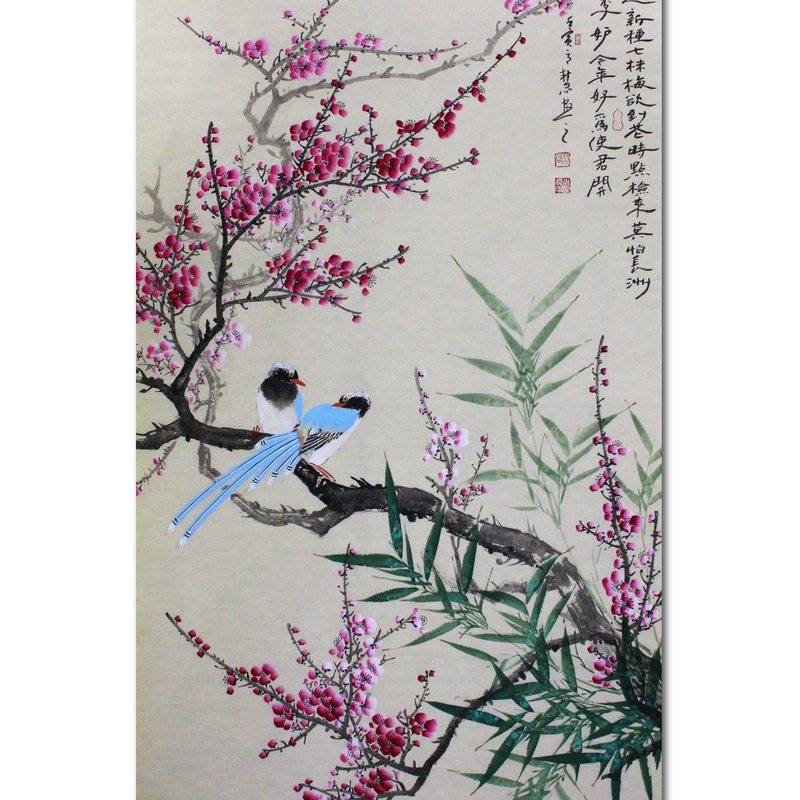 新種七株梅欲到花時點檢來莫怕長洲
李妒今年好爲使君開
壬寅